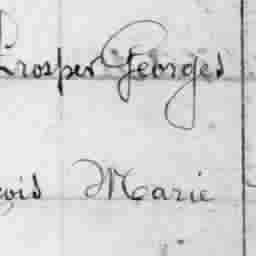 Prosper Georges
çois Marie